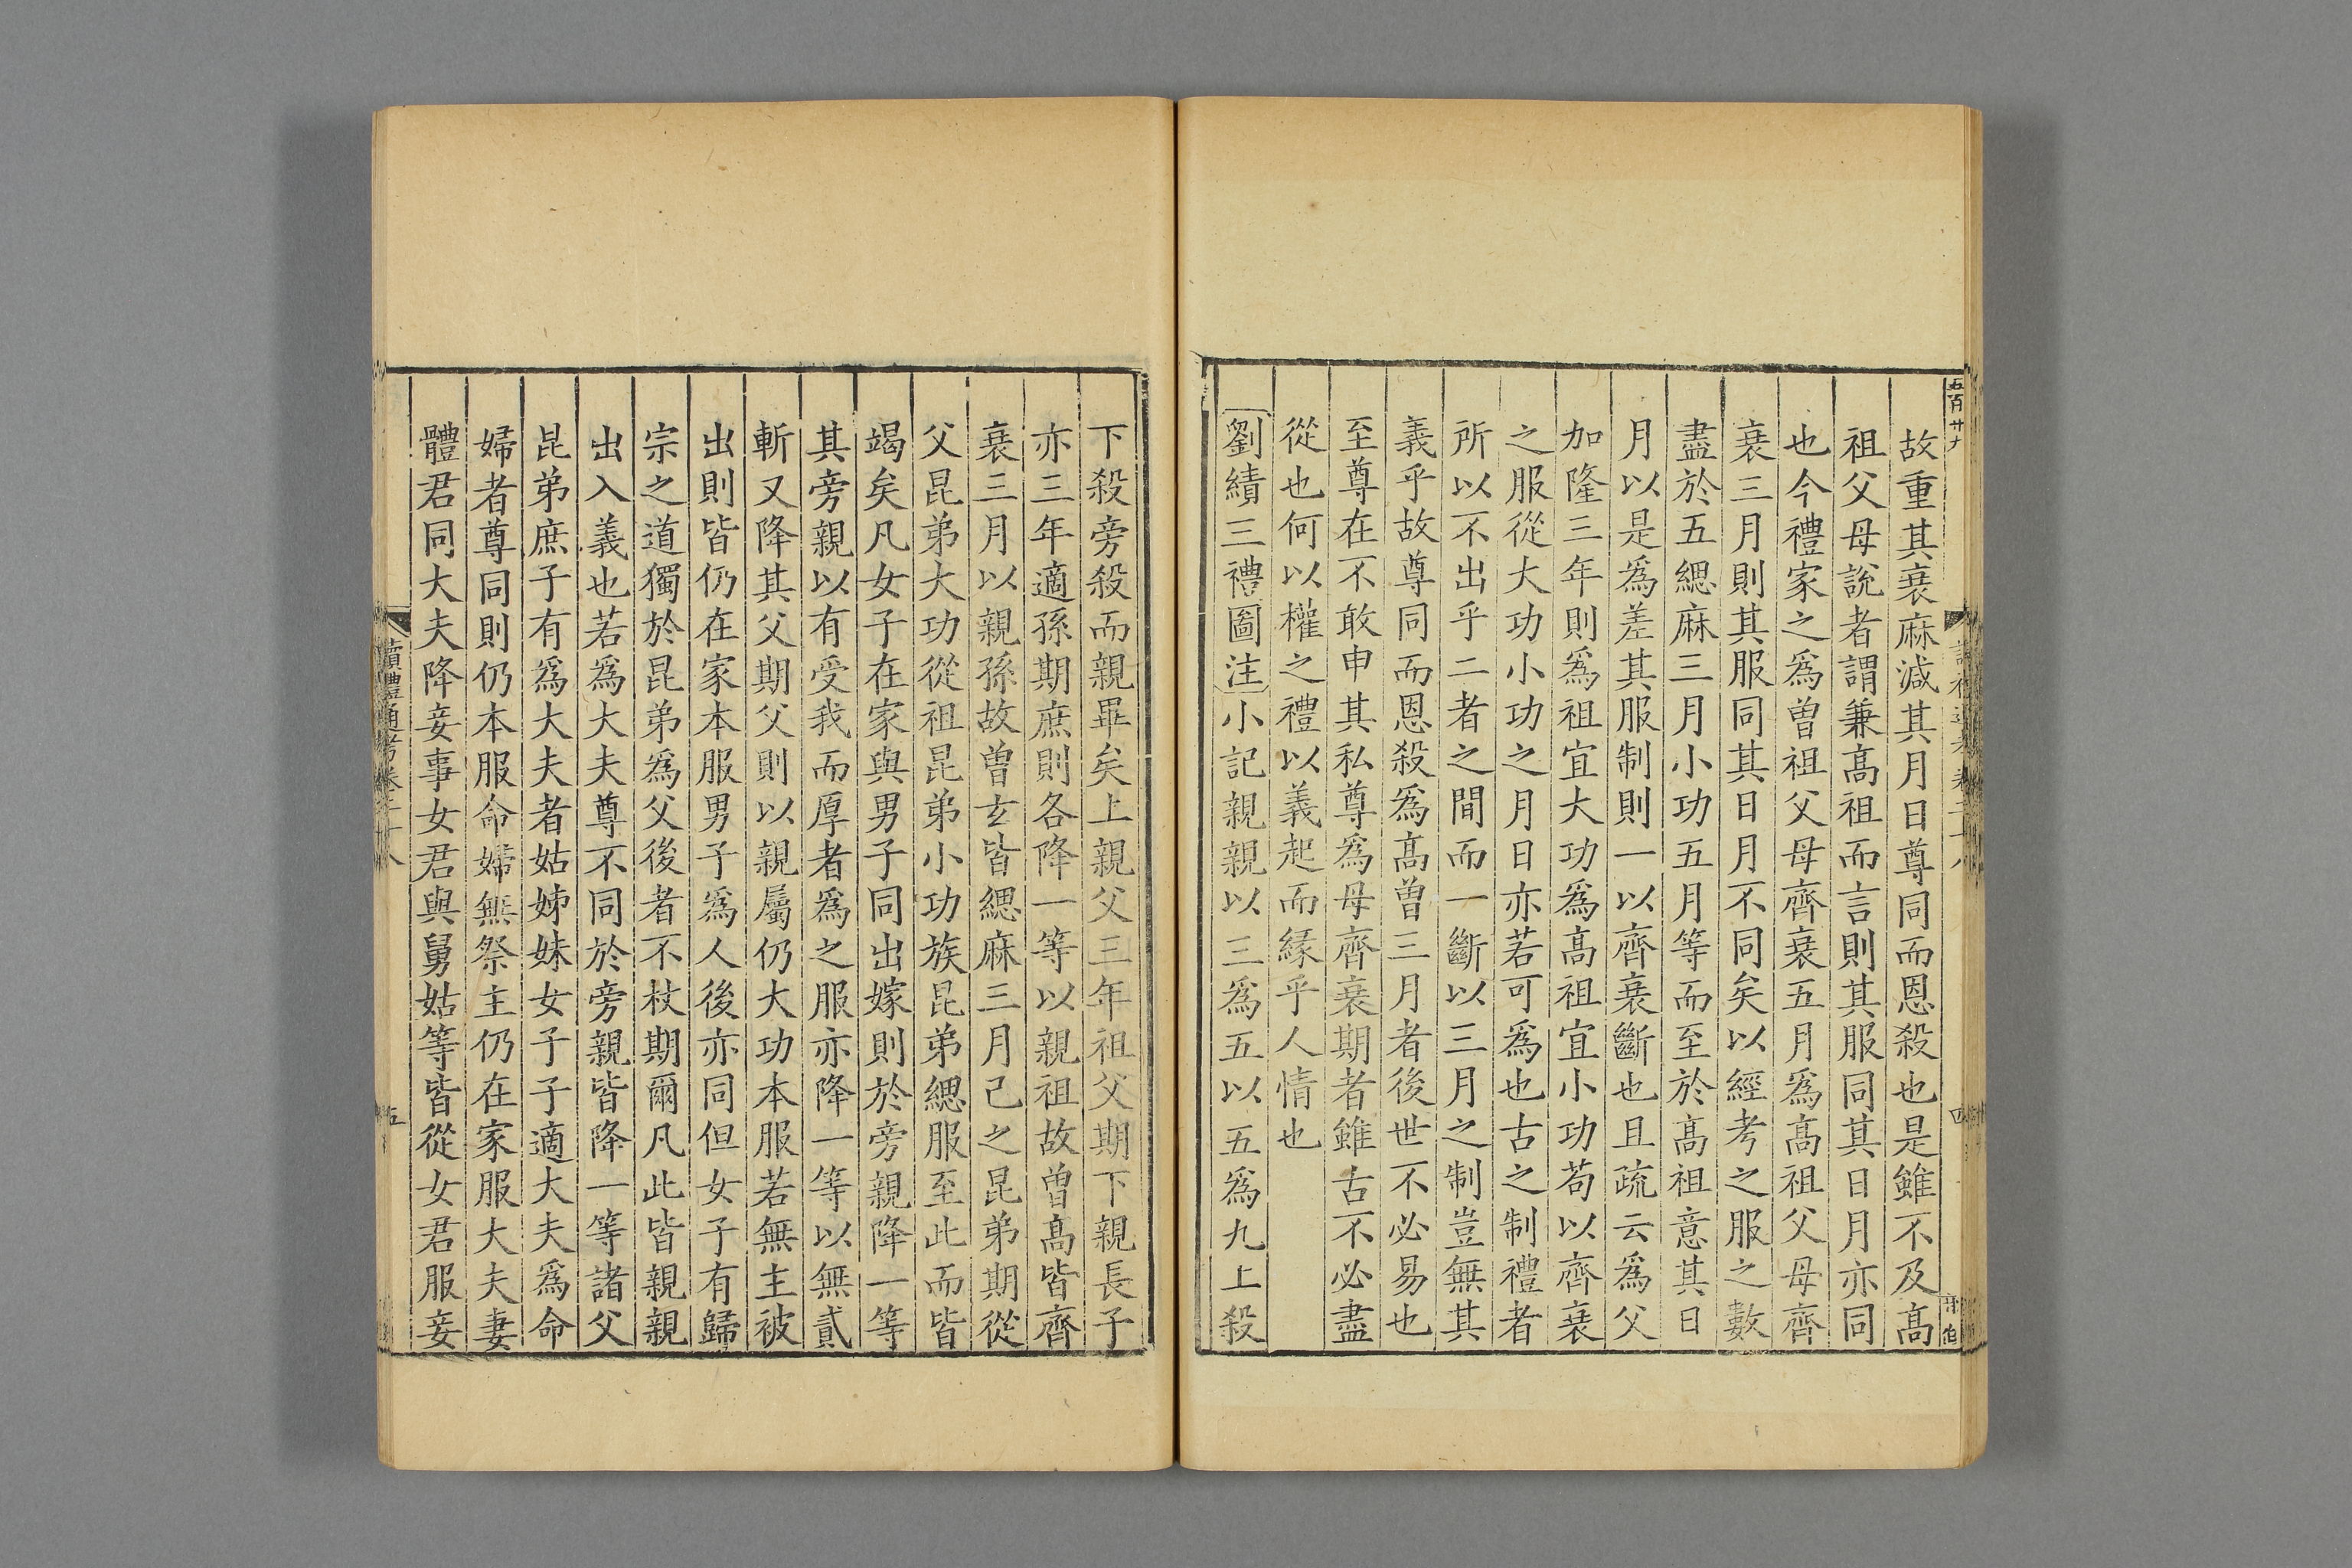 故重其衰麻減其月日尊同而恩殺也是雖不及髙
祖父母說者謂兼髙祖而言則其服同其日月亦同
也今禮家之爲曾祖父母齊衰五月爲髙祖父母齊
衰三月則其服同其日月不同矣以經考之服之數
盡於五緦麻三月小功五月等而至於髙祖意其日
月以是爲差其服制則一以齊衰斷也且疏云爲父
加隆三年則爲祖宜大功爲髙祖宜小功苟以齊衰
之服從大功小功之月日亦若可爲也古之制禮者
所以不出乎二者之間而一斷以三月之制豈無其
義乎故尊同而恩殺爲髙曾三月者後世不必易也
至尊在不敢申其私尊爲母齊衰期者雖古不必盡
從也何以權之禮以義起而縁乎人情也
劉績三禮圖注小記親親以三爲五以五爲九上殺
下殺旁殺而親畢矣上親父三年祖父期下親長子
亦三年適孫期庶則各降一等以親祖故曾髙皆齊
衰三月以親孫故曾玄皆緦麻三月己之昆弟期從
父昆弟大功從祖昆弟小功族昆弟緦服至此而皆
竭矣凡女子在家與男子同出嫁則於旁親降一等
其旁親以有受我而厚者爲之服亦降一等以無貳
斬又降其父期父則以親屬仍大功本服若無主被
出則皆仍在家本服男子爲人後亦同但女子有歸
宗之道獨於昆弟爲父後者不杖期爾凡此皆親親
出入義也若爲大夫尊不同於旁親皆降一等諸父
昆弟庶子有爲大夫者姑姊妹女子子適大夫爲命
婦者尊同則仍本服命婦無祭主仍在家服大夫妻
體君同大夫降妾事女君與舅姑等皆從女君服妾
讀禮通考卷二十八
五